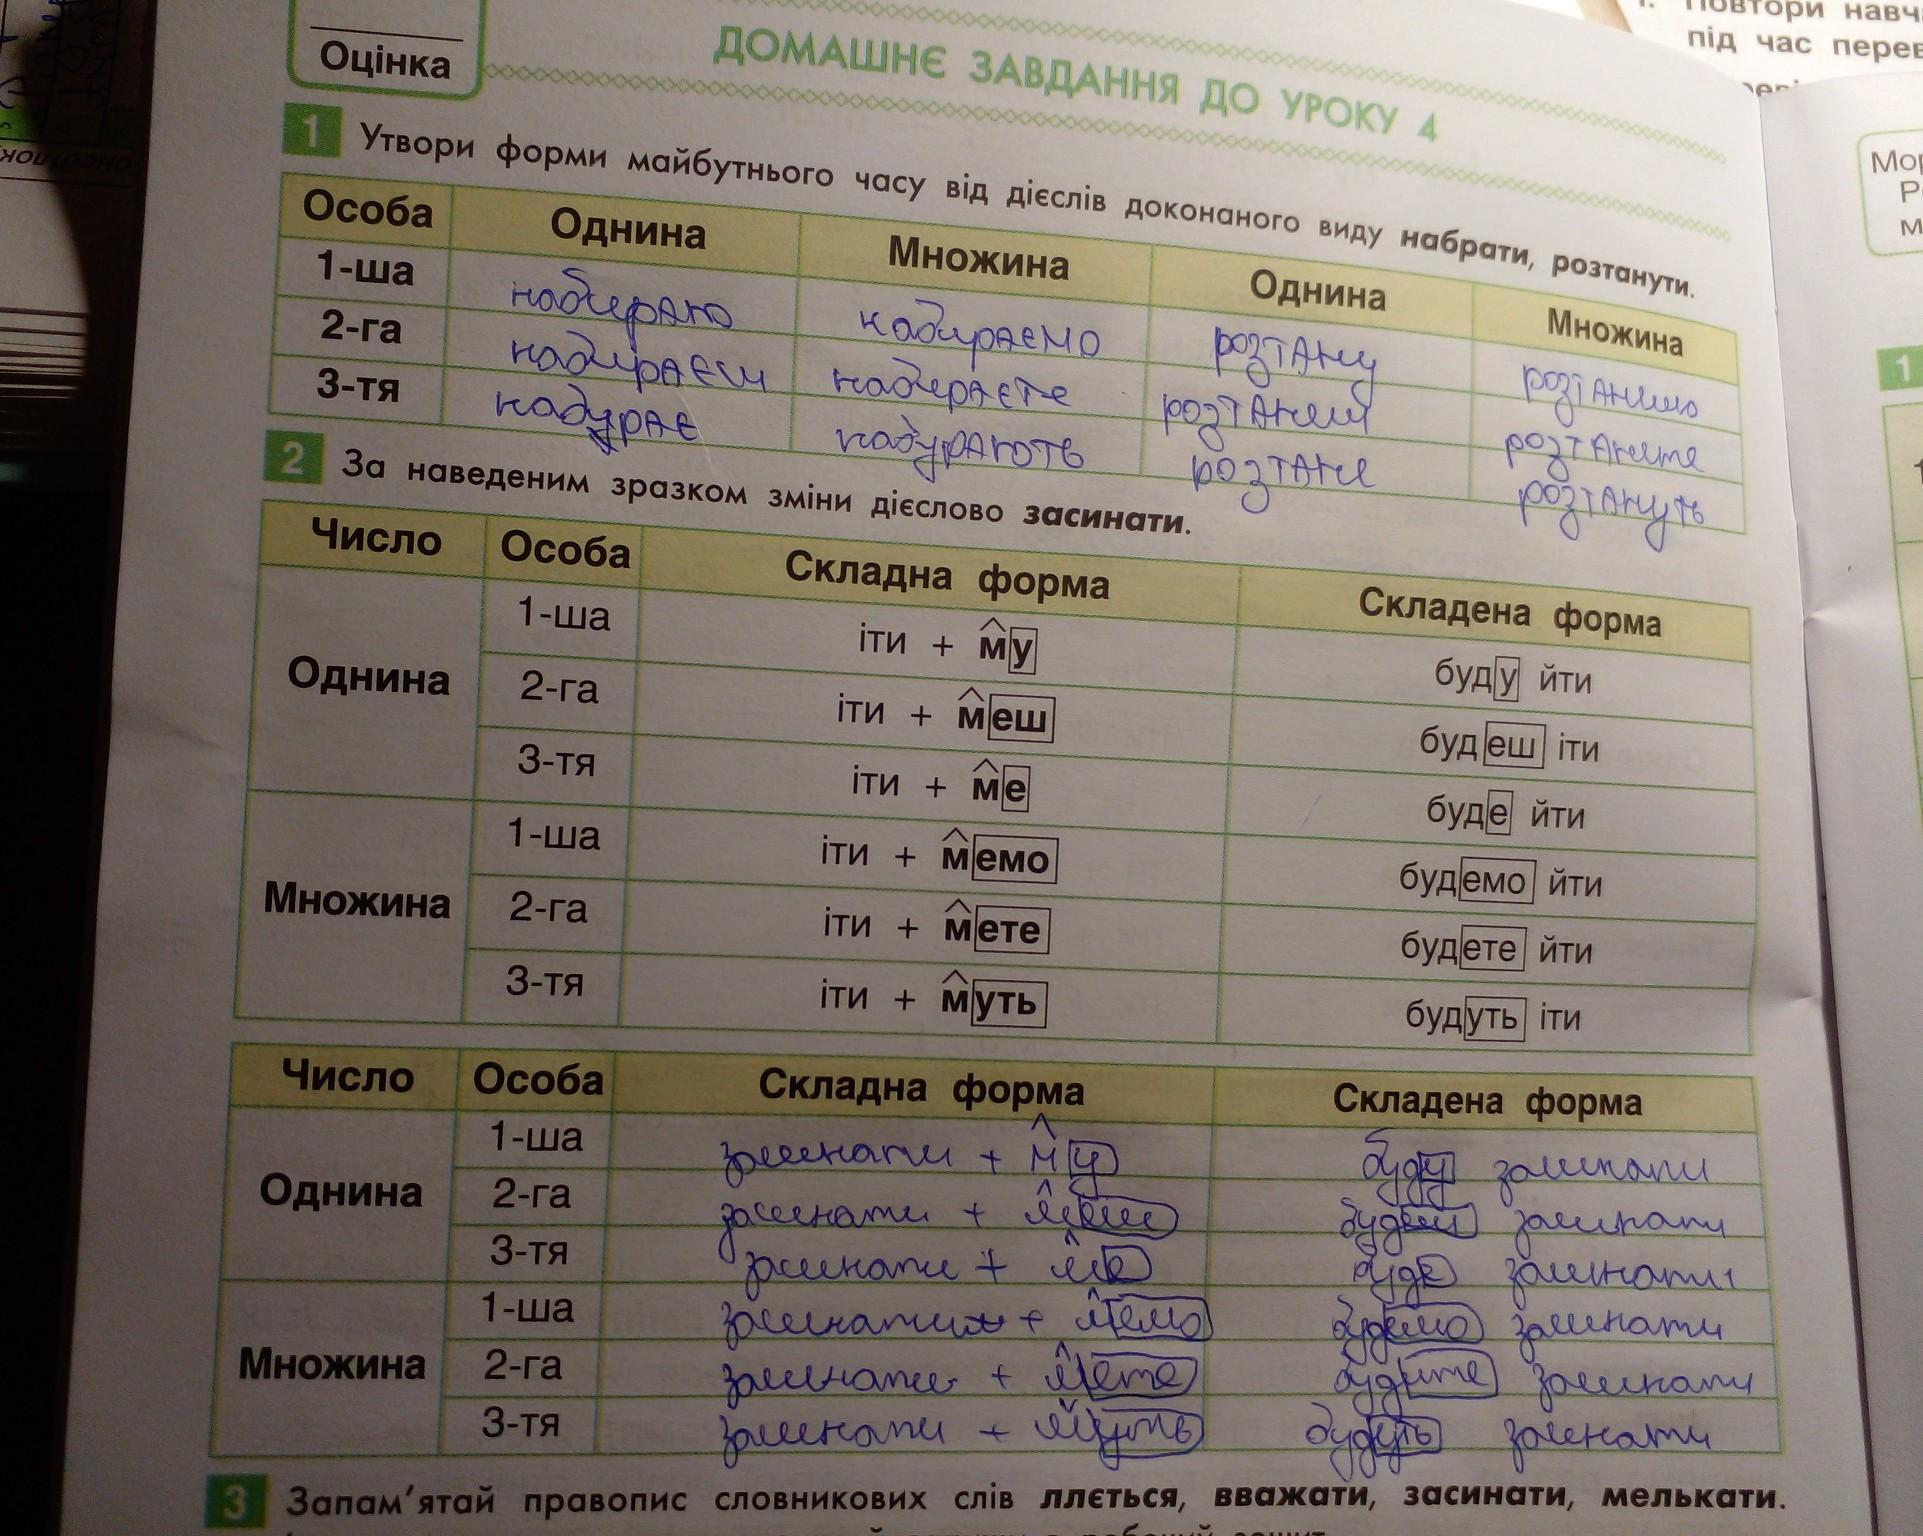 Оцінка
ДОМАШНЄ ЗАВДАННЯ ДО УРОКУ 4
1 Утвори форми майбутнього часу від дієслів доконаного виду набрати, розтанути.
Особа Однина Множина Однина Множина
1-ша набираю набираємо розтану розтанемо
2-га набираєш набираєте розтанеш розтанете
3-тя набурає набурають розтане розтануть
2 За наведеним зразком зміни дієслово засинати.
Число Особа Складна форма Складена форма
Однина
1-ша іти + му буду йти
2-га іти + меш будеш іти
3-тя іти + ме буде йти
Множина
1-ша іти + мемо будемо йти
2-га іти + мете будете йти
3-тя іти + муть будуть іти
Число Особа Складна форма Складена форма
Однина
1-ша засинати + му буду засинати
2-га засинати + меш будеш засинати
3-тя засинати + ме буде засинати
Множина
1-ша засинати + мемо будемо засинати
2-га засинати + мете будите засинати
3-тя засинати + муть будуть засинати
3 Запам'ятай правопис словникових слів ллється, вважати, засинати, мелькати.
під час перев
1